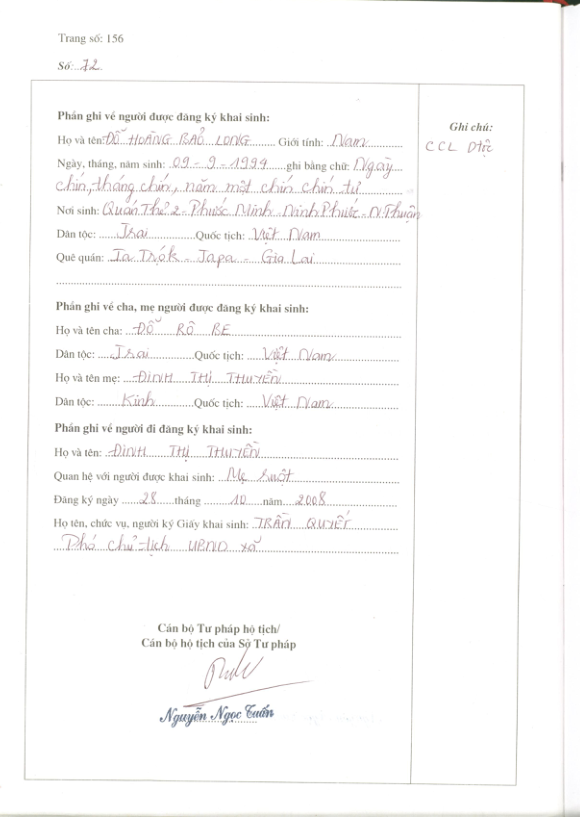 Trang số: 156
Số: 72
Phần ghi về người được đăng ký khai sinh:
Họ và tên: ĐỖ HOÀNG BẢO LONG Giới tính: Nam
Ngày, tháng, năm sinh: 09 - 9 - 1994 ghi bằng chữ: Ngày
chín, tháng chín, năm một chín chín tư
Nơi sinh: Quán Thẻ 2 - Phước Minh - Ninh Phước - N.Thuận
Dân tộc: Jrai Quốc tịch: Việt Nam
Quê quán: Ia Trók - Iapa - Gia Lai
Phần ghi về cha, mẹ người được đăng ký khai sinh:
Họ và tên cha: ĐỖ RÔ BE
Dân tộc: Jrai Quốc tịch: Việt Nam
Họ và tên mẹ: ĐINH THỊ THUYỀN
Dân tộc: Kinh Quốc tịch: Việt Nam
Phần ghi về người đi đăng ký khai sinh:
Họ và tên: ĐINH THỊ THUYỀN
Quan hệ với người được khai sinh: Mẹ ruột
Đăng ký ngày 28 tháng 10 năm 2008
Họ tên, chức vụ, người ký Giấy khai sinh: TRẦN QUYẾT
Phó chủ tịch UBND xã
Cán bộ Tư pháp hộ tịch/
Cán bộ hộ tịch của Sở Tư pháp
Nguyễn Ngọc Tuấn
Ghi chú:
CCL